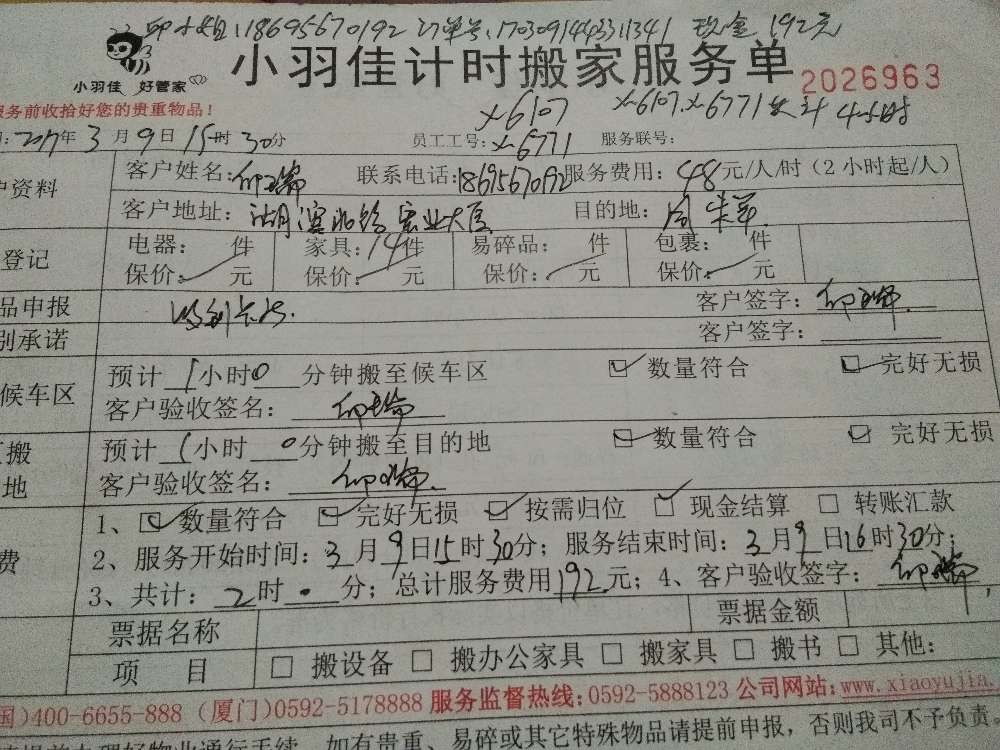 小姐:18695670192 订单号:1703091443311341 现金192元
小羽佳 好管家
小羽佳计时搬家服务单 2026963
服务前收拾好您的贵重物品!
x-6107 x-6107.x-6771 共计4小时
:2017年3月9日15时30分 员工工号:x-6771 服务联号:
户资料 客户姓名: 联系电话:18695670192 服务费用:48元/人/时(2小时起/人)
客户地址:湖滨北路宏业大厦 目的地:同
登记 电器: 件 家具:14件 易碎品: 件 包裹: 件
保价: 元 保价: 元 保价: 元 保价: 元
品申报 客户签字:
别承诺 客户签字:
候车区 预计1小时0分钟搬至候车区 ☑数量符合 ☑完好无损
客户验收签名:
搬 预计1小时0分钟搬至目的地 ☑数量符合 ☑完好无损
地 客户验收签名:
1、☑数量符合 ☑完好无损 ☑按需归位 ☑现金结算 □转账汇款
费 2、服务开始时间:3月9日15时30分;服务结束时间:3月9日16时30分;
3、共计:2时 分;总计服务费用192元;4、客户验收签字:
票据名称 票据金额
项 目 □搬设备 □搬办公家具 □搬家具 □搬书 □其他:
国)400-6655-888 (厦门)0592-5178888 服务监督热线:0592-5888123 公司网站:www.xiaoyujia.
提前办理好物业通行手续,如有贵重、易碎或其它特殊物品请提前申报,否则我司不予负责。